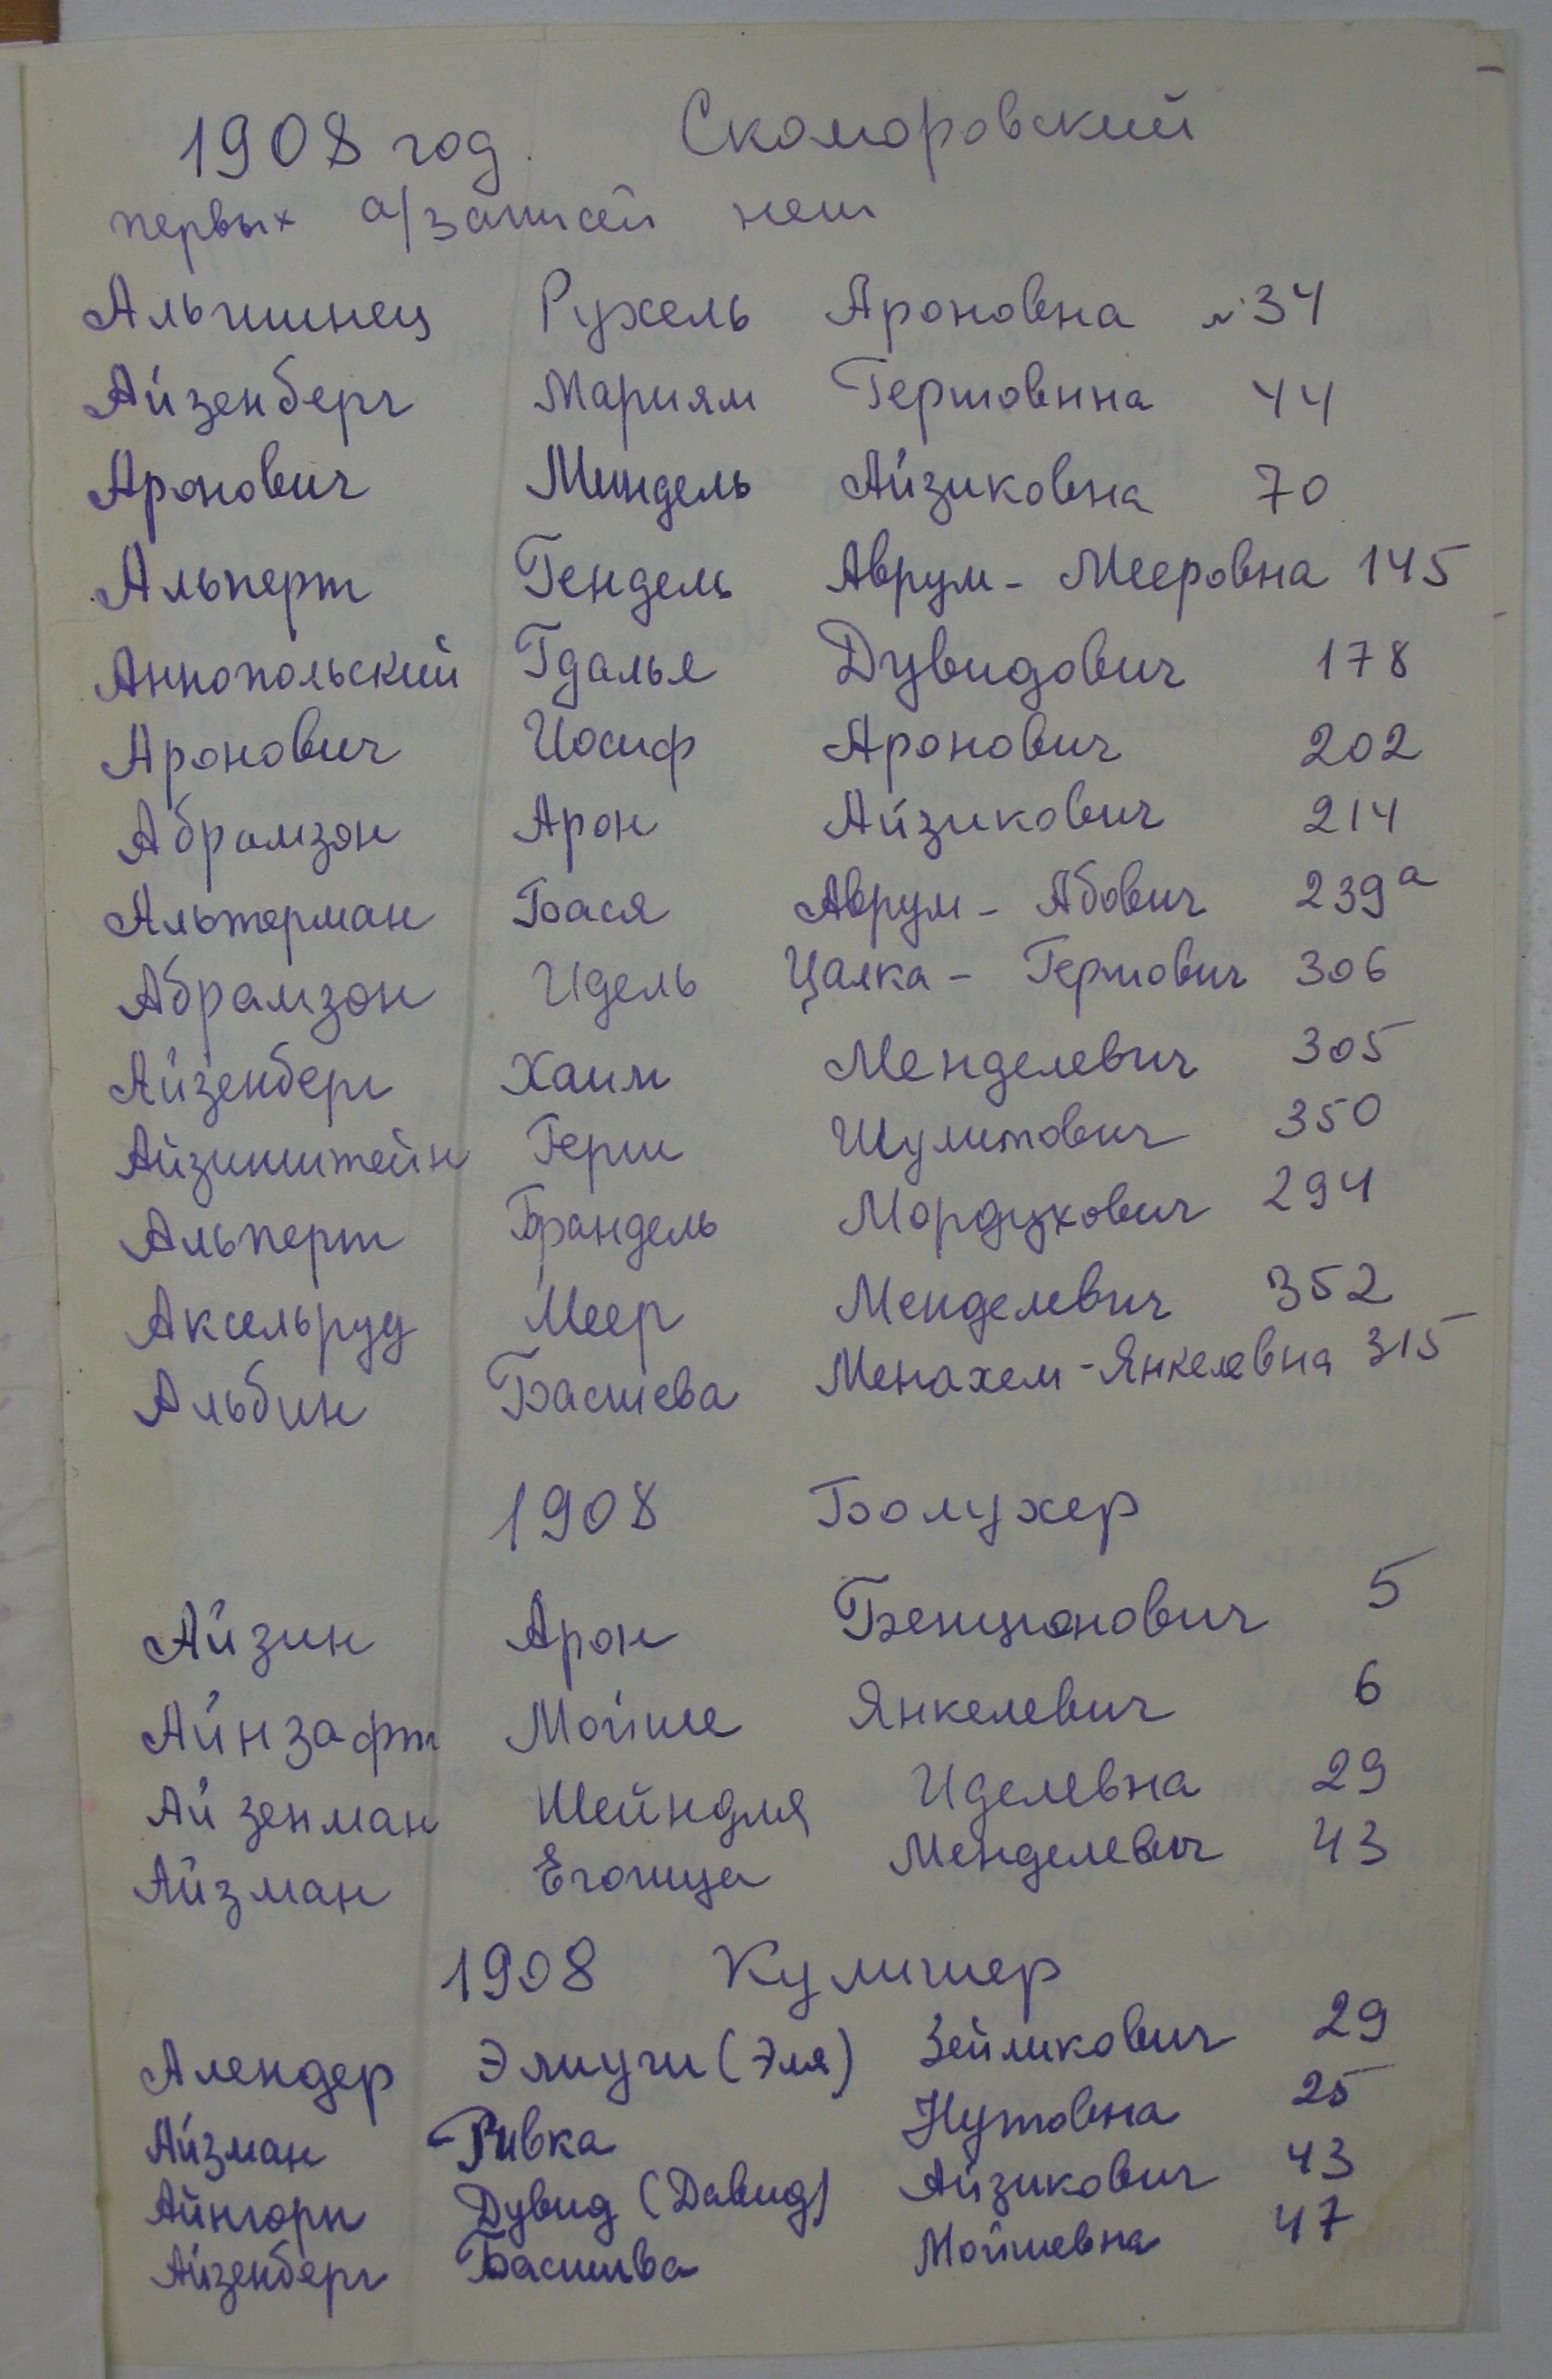 1908 год. Скоморовский
первых а/записей нет
Альчинец Рухель Ароновна №34
Айзенберг Мариям Гершовнна 44
Аронович Миндель Айзиковна 70
Альперт Гендель Аврум - Мееровна 145
Аннопольский Гдалья Дувидович 178
Аронович Иосиф Аронович 202
Абрамзон Арон Айзикович 214
Альтерман Бася Аврум - Абович 239а
Абрамзон Идель Цалка - Гершович 306
Айзенберг Хаим Менделевич 305
Айзинштейн Герш Шулимович 350
Альперт Брандель Мордухович 294
Аксельруд Меер Менделевич 352
Альбин Басшева Менахем-Янкелевна 315
1908 Болухер
Айзин Арон Бенционович 5
Айнзафт Мойше Янкелевич 6
Айзенман Шейндля Иделевна 29
Айзман Менделевич 43
1908 Кулишер
Алендер (Эля) Зейликович 29
Айзман Ривка Нутовна 25
Айнгорн Дувид (Давид) Айзикович 43
Айзенберг Басшива Мойшевна 47